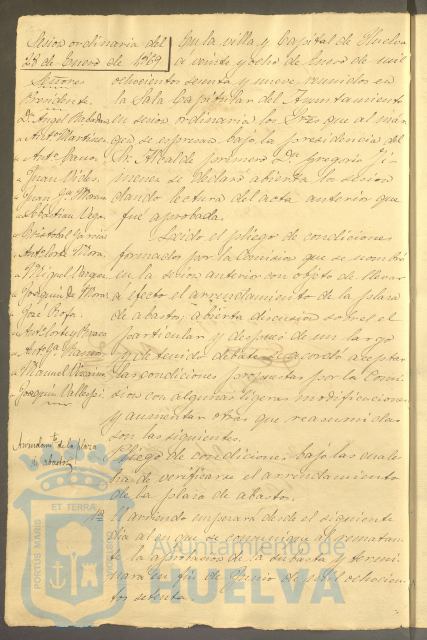 Sesion ordinaria del
28 de Enero de 1869
Señores
Presidente
D. Angel
" Ant.º Martinez
" Ant.º
" Juan
" Juan J.
" Sebastian Vega
" Cristobal Garcia
" Ant.º Mora
" Miguel Vazquez
" Joaquin de Mora
" Jose
" Ant.º
" Ant.º
" Manuel
" Joaquin Vallejo
En la villa y Capital de Huelva
a veinte y ocho de Enero de mil
ochocientos sesenta y nueve, reunidos en
la Sala Capitular del Ayuntamiento
en sesion ordinaria los Sres que al mar
gen se espresan, bajo la presidencia del
Sr. Alcalde primero Dn Gregorio Ji
menez se declaró abierta la sesion
dando lectura del acta anterior que
fue aprobada.
Leido el pliego de condiciones
formados por la Comision que se nombró
en la sesion anterior con objeto de llevar
á efecto el arrendamiento de la plaza
de abastos, abierta discusion sobre el
particular y despues de un largo
y detenido debate se acordó aceptar
las condiciones propuestas por la Comi
sion con algunas ligeras modificaciones
y aumentar otras que reasumidas
son las siguientes.
Arrendam.to de la plaza
de abastos
Pliego de condiciones bajo las cuales
ha de verificarse el arrendamiento
de la plaza de abastos.
1ª El arriendo empezará desde el siguiente
dia al en que se comunique al rematan
te la aprobacion de la subasta y termi
nará en fin de Junio de mil ochocien
tos setenta.
PORTUS MARIS ET TERRAE CUSTODIA
Ayuntamiento de
HUELVA